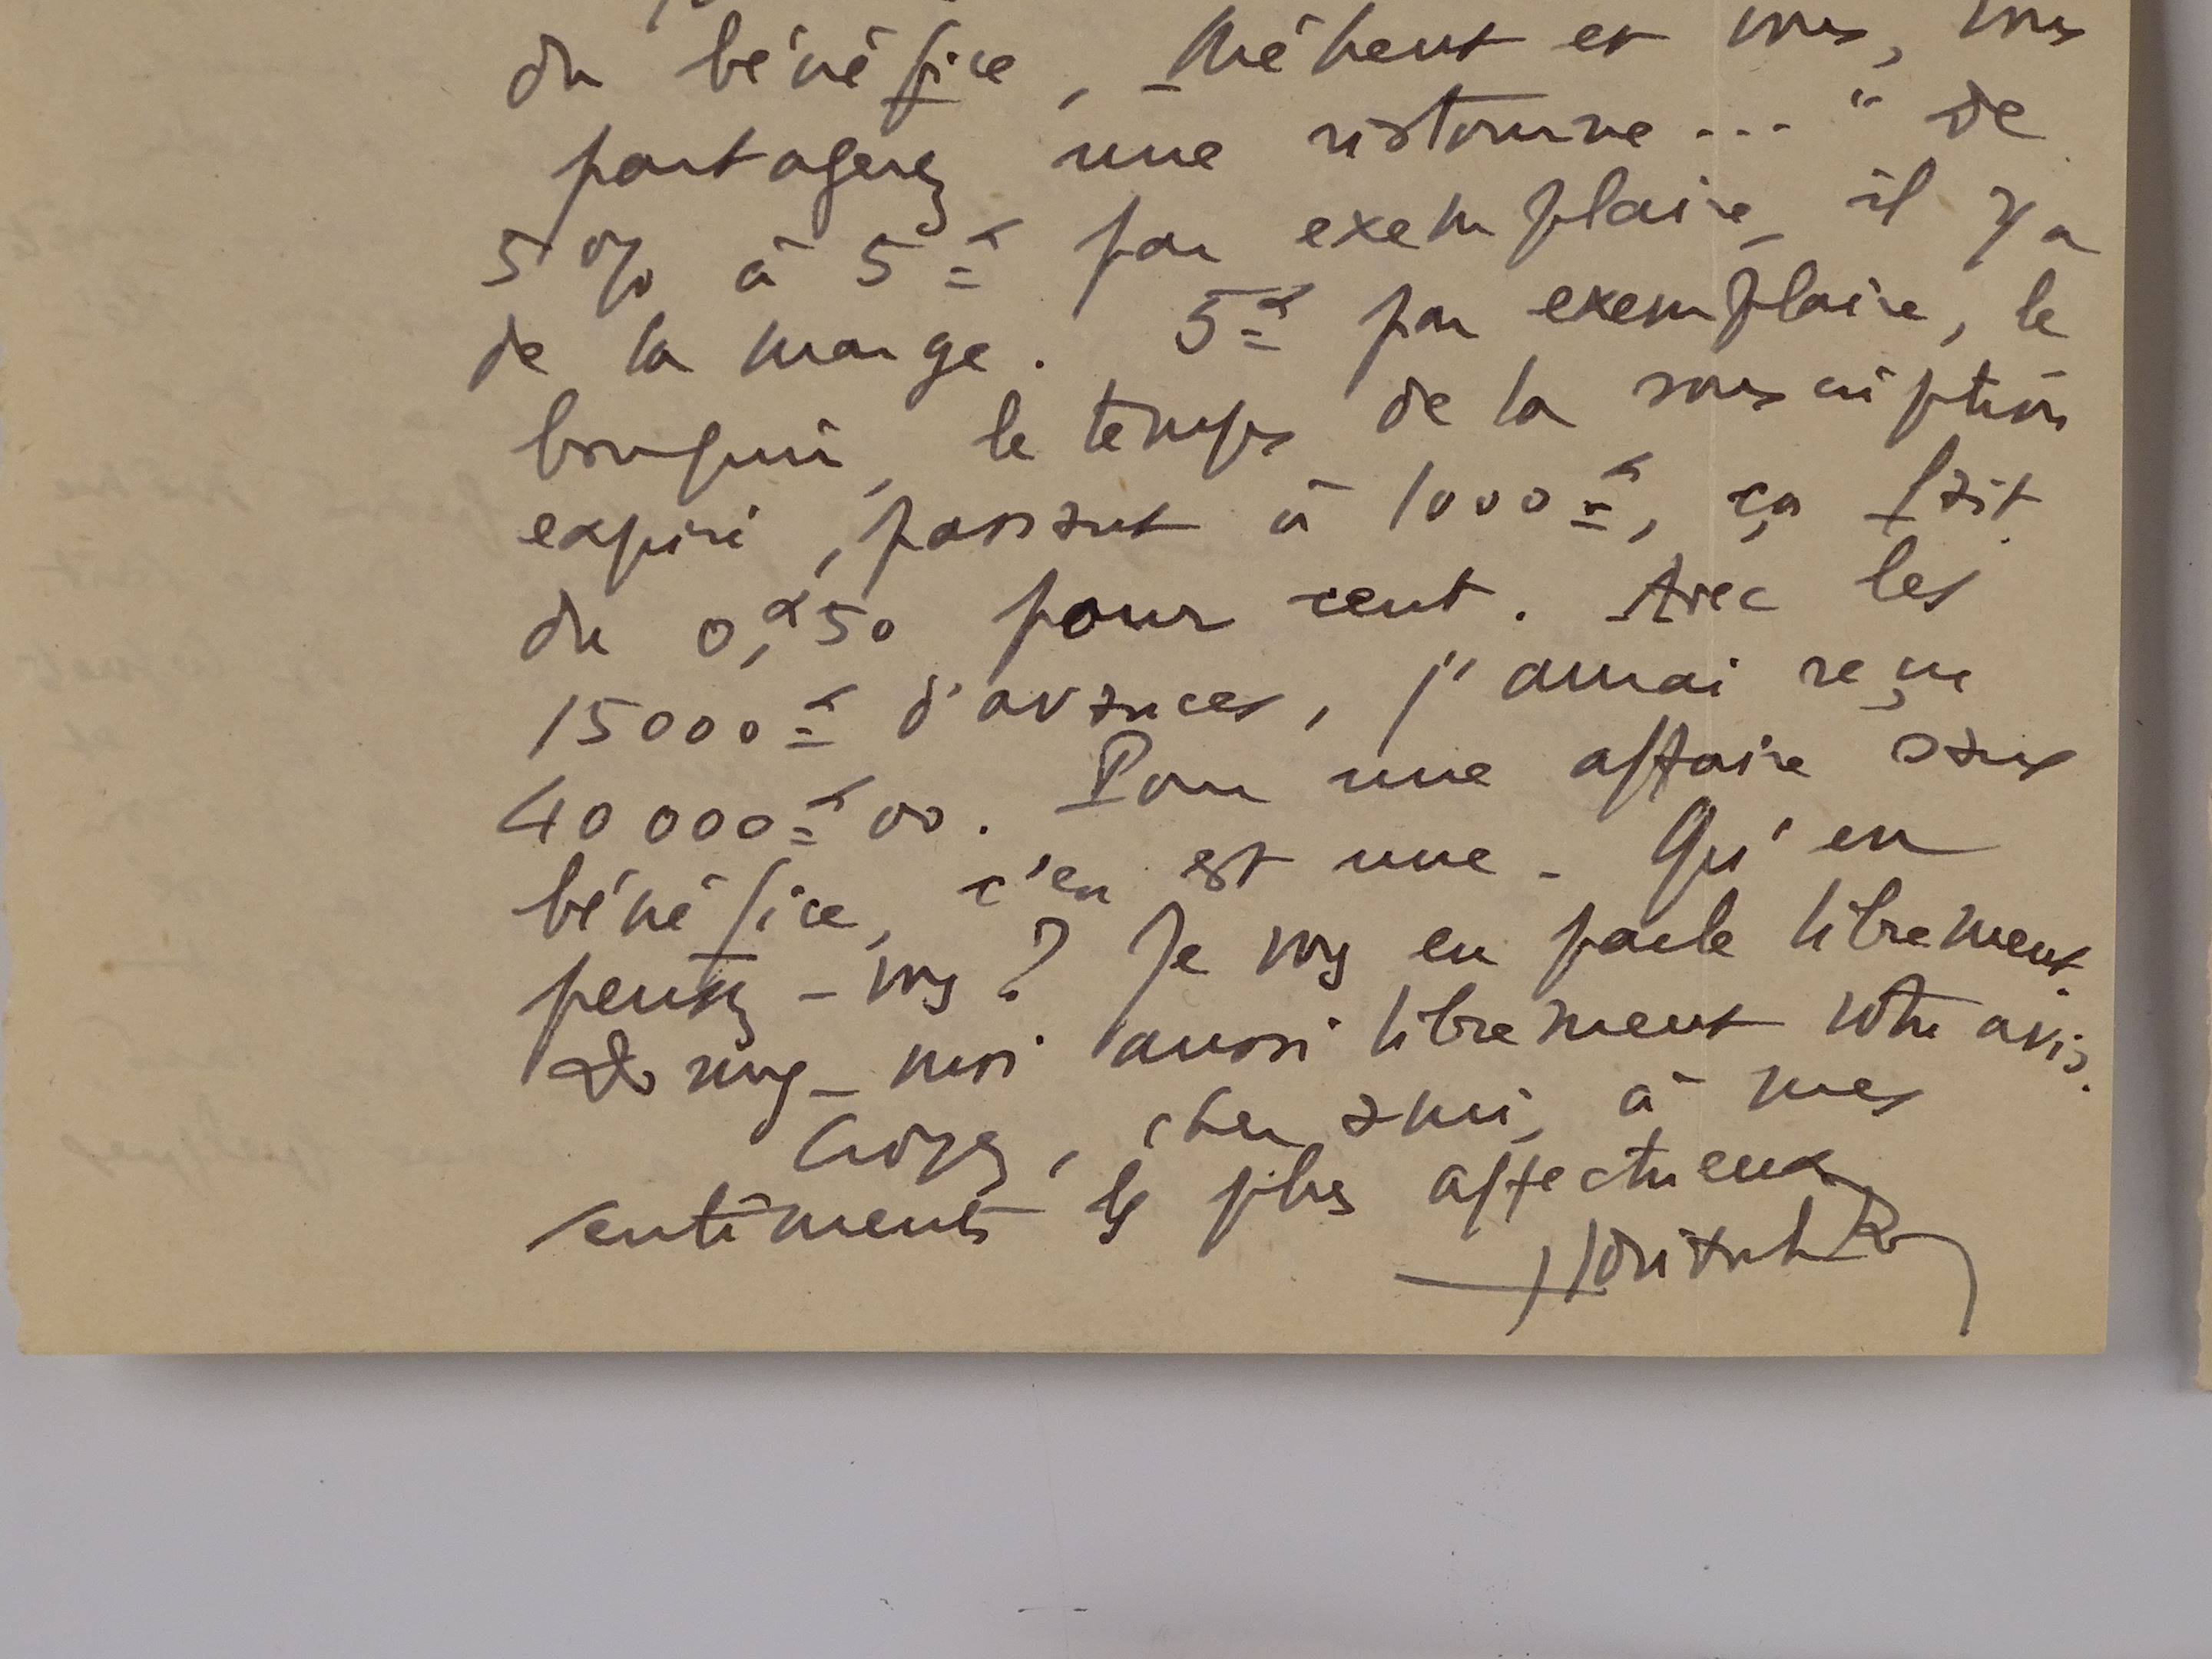 du bénéfice, Méheut et vous, vous
partagerez une ristourne... " de
5 % à 5 F par exemplaire, il y a
de la marge. 5 F par exemplaire, le
bouquin, le temps de la souscription
expiré, passant à 1000 F, ça fait
du 0,F50 pour cent. Avec les
15000 F d'avances, j'aurai reçu
40000 F 00. Pour une affaire sans
bénéfice, c'en est une. Qu'en
pensez-vs? Je vs en parle librement.
Donnez-moi aussi librement votre avis.
Croyez, cher ami, à mes
sentiments ls plus affectueux